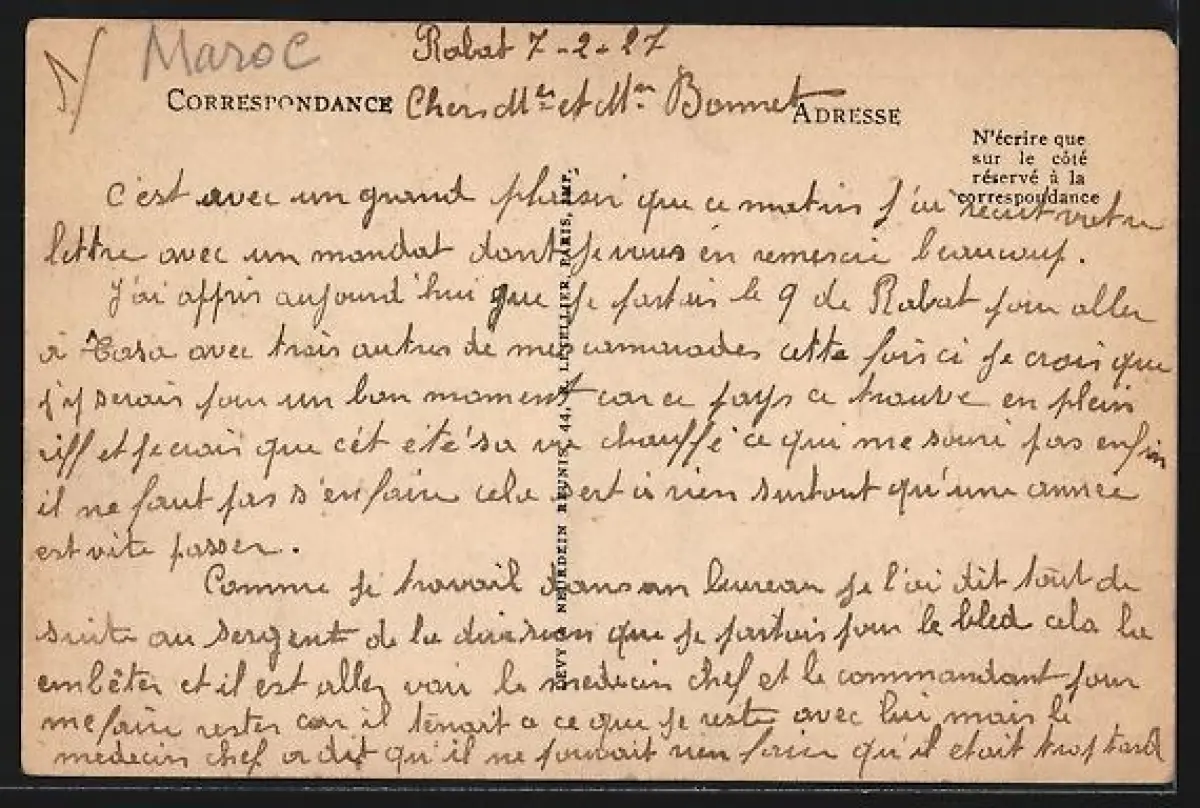 1/ Maroc
Rabat 7-2-27
CORRESPONDANCE Chers Mer et Mm Bonnet
ADRESSE
N'écrire que
sur le côté
réservé à la
correspondance
C'est avec un grand plaisir que ce matin j'ai recut votre
lettre avec un mandat dont je vous en remercie beaucoup.
J'ai appris aujourd'hui que je partais le 9 de Rabat pour aller
a avec trois autres de mes camarades cette fois ci je crois que
j'y serais pour un bon moment car ce pays ce trouve en plein
riff et je crois que cét été sa va chauffé ce qui me souri pas enfin
il ne faut pas s'en faire cela sert à rien surtout qu'une année
est vite passer.
Comme je travail dans un bureau je l'ai dit tout de
suite au sergent de la division que je partais pour le bled cela la
embêter et il est allez voir le medecin chef et le commandant pour
me faire rester car il tenait a ce que je reste avec lui mais le
medecin chef a dit qu'il ne pouvait rien faire qu'il etait trop tard
LEVY & NEURDEIN RÉUNIS, 44, R. LETELLIER, PARIS, IMP.